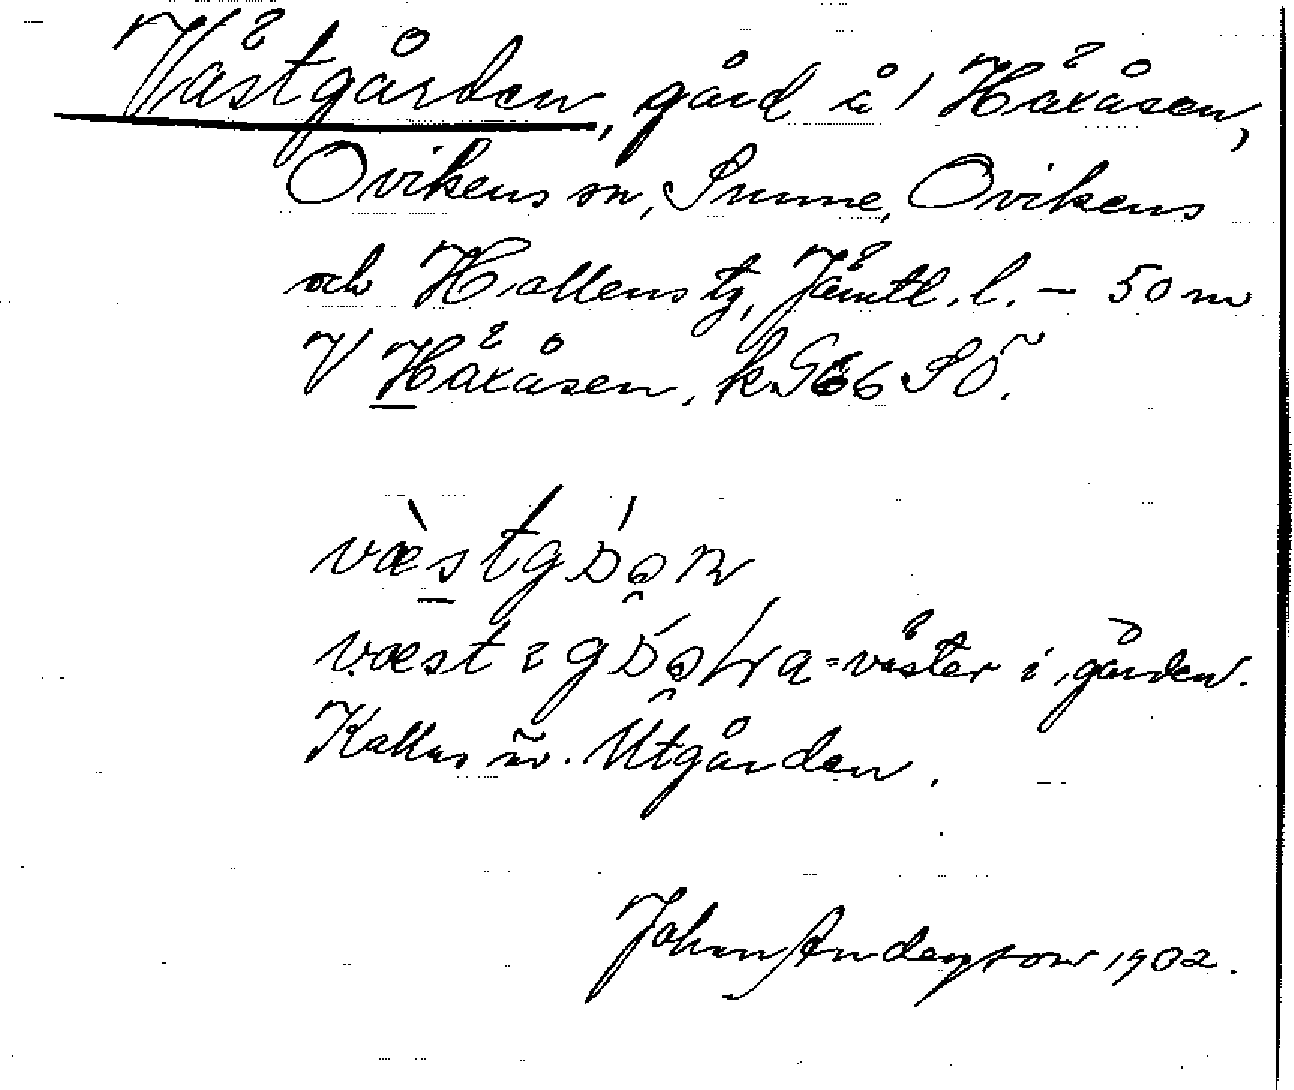 Västgården, gård å 1 Häxåsen,
Ovikens sn, Sunne, Ovikens
och Hallens tg, Jämtl. l. – 50 m
V Häxåsen, k. 566 SO.
væstg
væst
= väster i gården.
Kallas äv. Utgården.
Johan Andersson 1902.